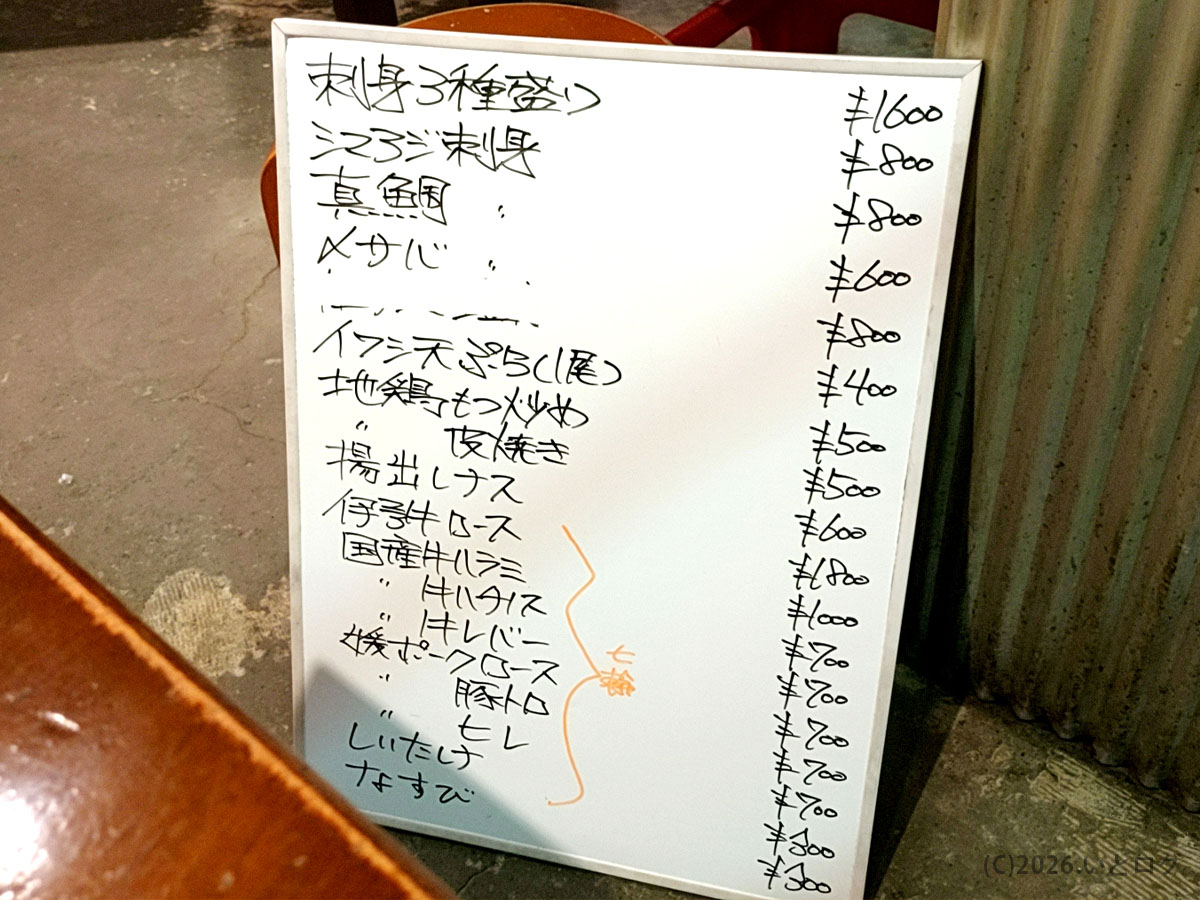 刺身3種盛り ¥1600
シマアジ刺身 ¥800
真鯛 〃 ¥800
〆サバ 〃 ¥600
¥800
イワシ天ぷら(1尾) ¥400
地鶏もつ炒め ¥500
〃 皮焼き ¥500
揚出しナス ¥600
伊予牛ロース ¥1800
国産牛ハラミ ¥1000
〃 牛ハチノス ¥700
〃 牛レバー ¥700
媛ポークロース ¥700
〃 豚トロ ¥700
〃 ヒレ ¥700
しいたけ ¥300
なすび ¥300
(C)2026.いとログ